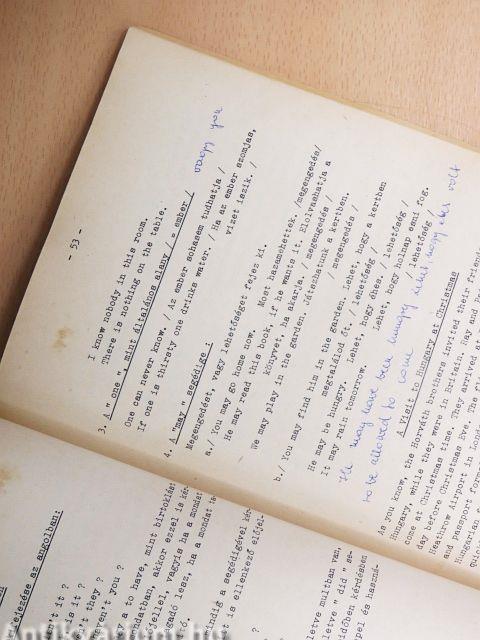 - 53 -
I know nobody in this room.
There is nothing on the table.
3. A " one " mint általános alany / = ember / vagy you
One can never know. / Az ember sohasem tudhatja /
If one is thirsty one drinks water. / Ha az ember szomjas,
vizet iszik. /
4. A "may" segédige :
Megengedést, vagy lehetőséget fejez ki.
a./ You may go home now. Most hazamehettek. /megengedés/
He may read this book, if he wants it. Elolvashatja a
könyvet, ha akarja. / megengedés /
We may play in the garden. Játszhatunk a kertben.
/ megengedés /
b./ You may find him in the garden. Lehet, hogy a kertben
megtalálod őt. / lehetőség /
He may be hungry. Lehet, hogy éhes. / lehetőség /
It may rain tomorrow. Lehet, hogy holnap esni fog.
/ lehetőség /
He may have been hungry lehet hogy éhes volt
to be allowed to come
A Visit to Hungary at Christmas
As you know, the Horváth brothers invited their friend
Hungary, while they were in Britain. Ray and
come at Christmas time. They arrived at
day before Christmas Eve. The
Heathrow Airport in
and passport
Hungarian
ejezése az angolban:
't it ?
n't they ?
ren't you ?
a to have, mint birtoklást
ndatban, akkor ezzel is
jellel, vagyis ha a mondat
gadó lesz, ha a mondat
indig a segédigével
t is ellenkező előjel-
letve multban van,
letve " did " se-
időben kérdésben
pel és haszná-